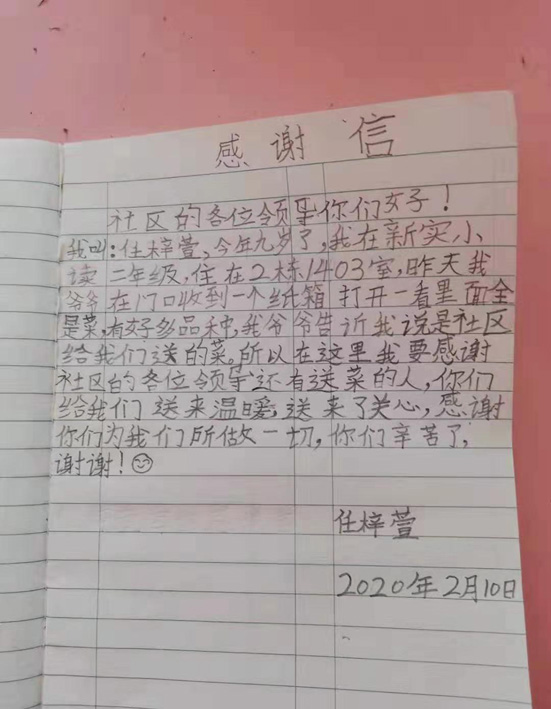 感谢信
社区的各位领导你们好！
我叫：任梓萱、今年九岁了，我在新实小
读二年级，住在2栋1403室，昨天我
爷爷在门口收到一个纸箱打开一看里面全
是菜，有好多品种，我爷爷告诉我说是社区
给我们送的菜。所以在这里我要感谢
社区的各位领导还有送菜的人，你们
给我们送来温暖，送来了关心，感谢
你们为我们所做一切，你们辛苦了，
谢谢！
任梓萱
2020年2月10日